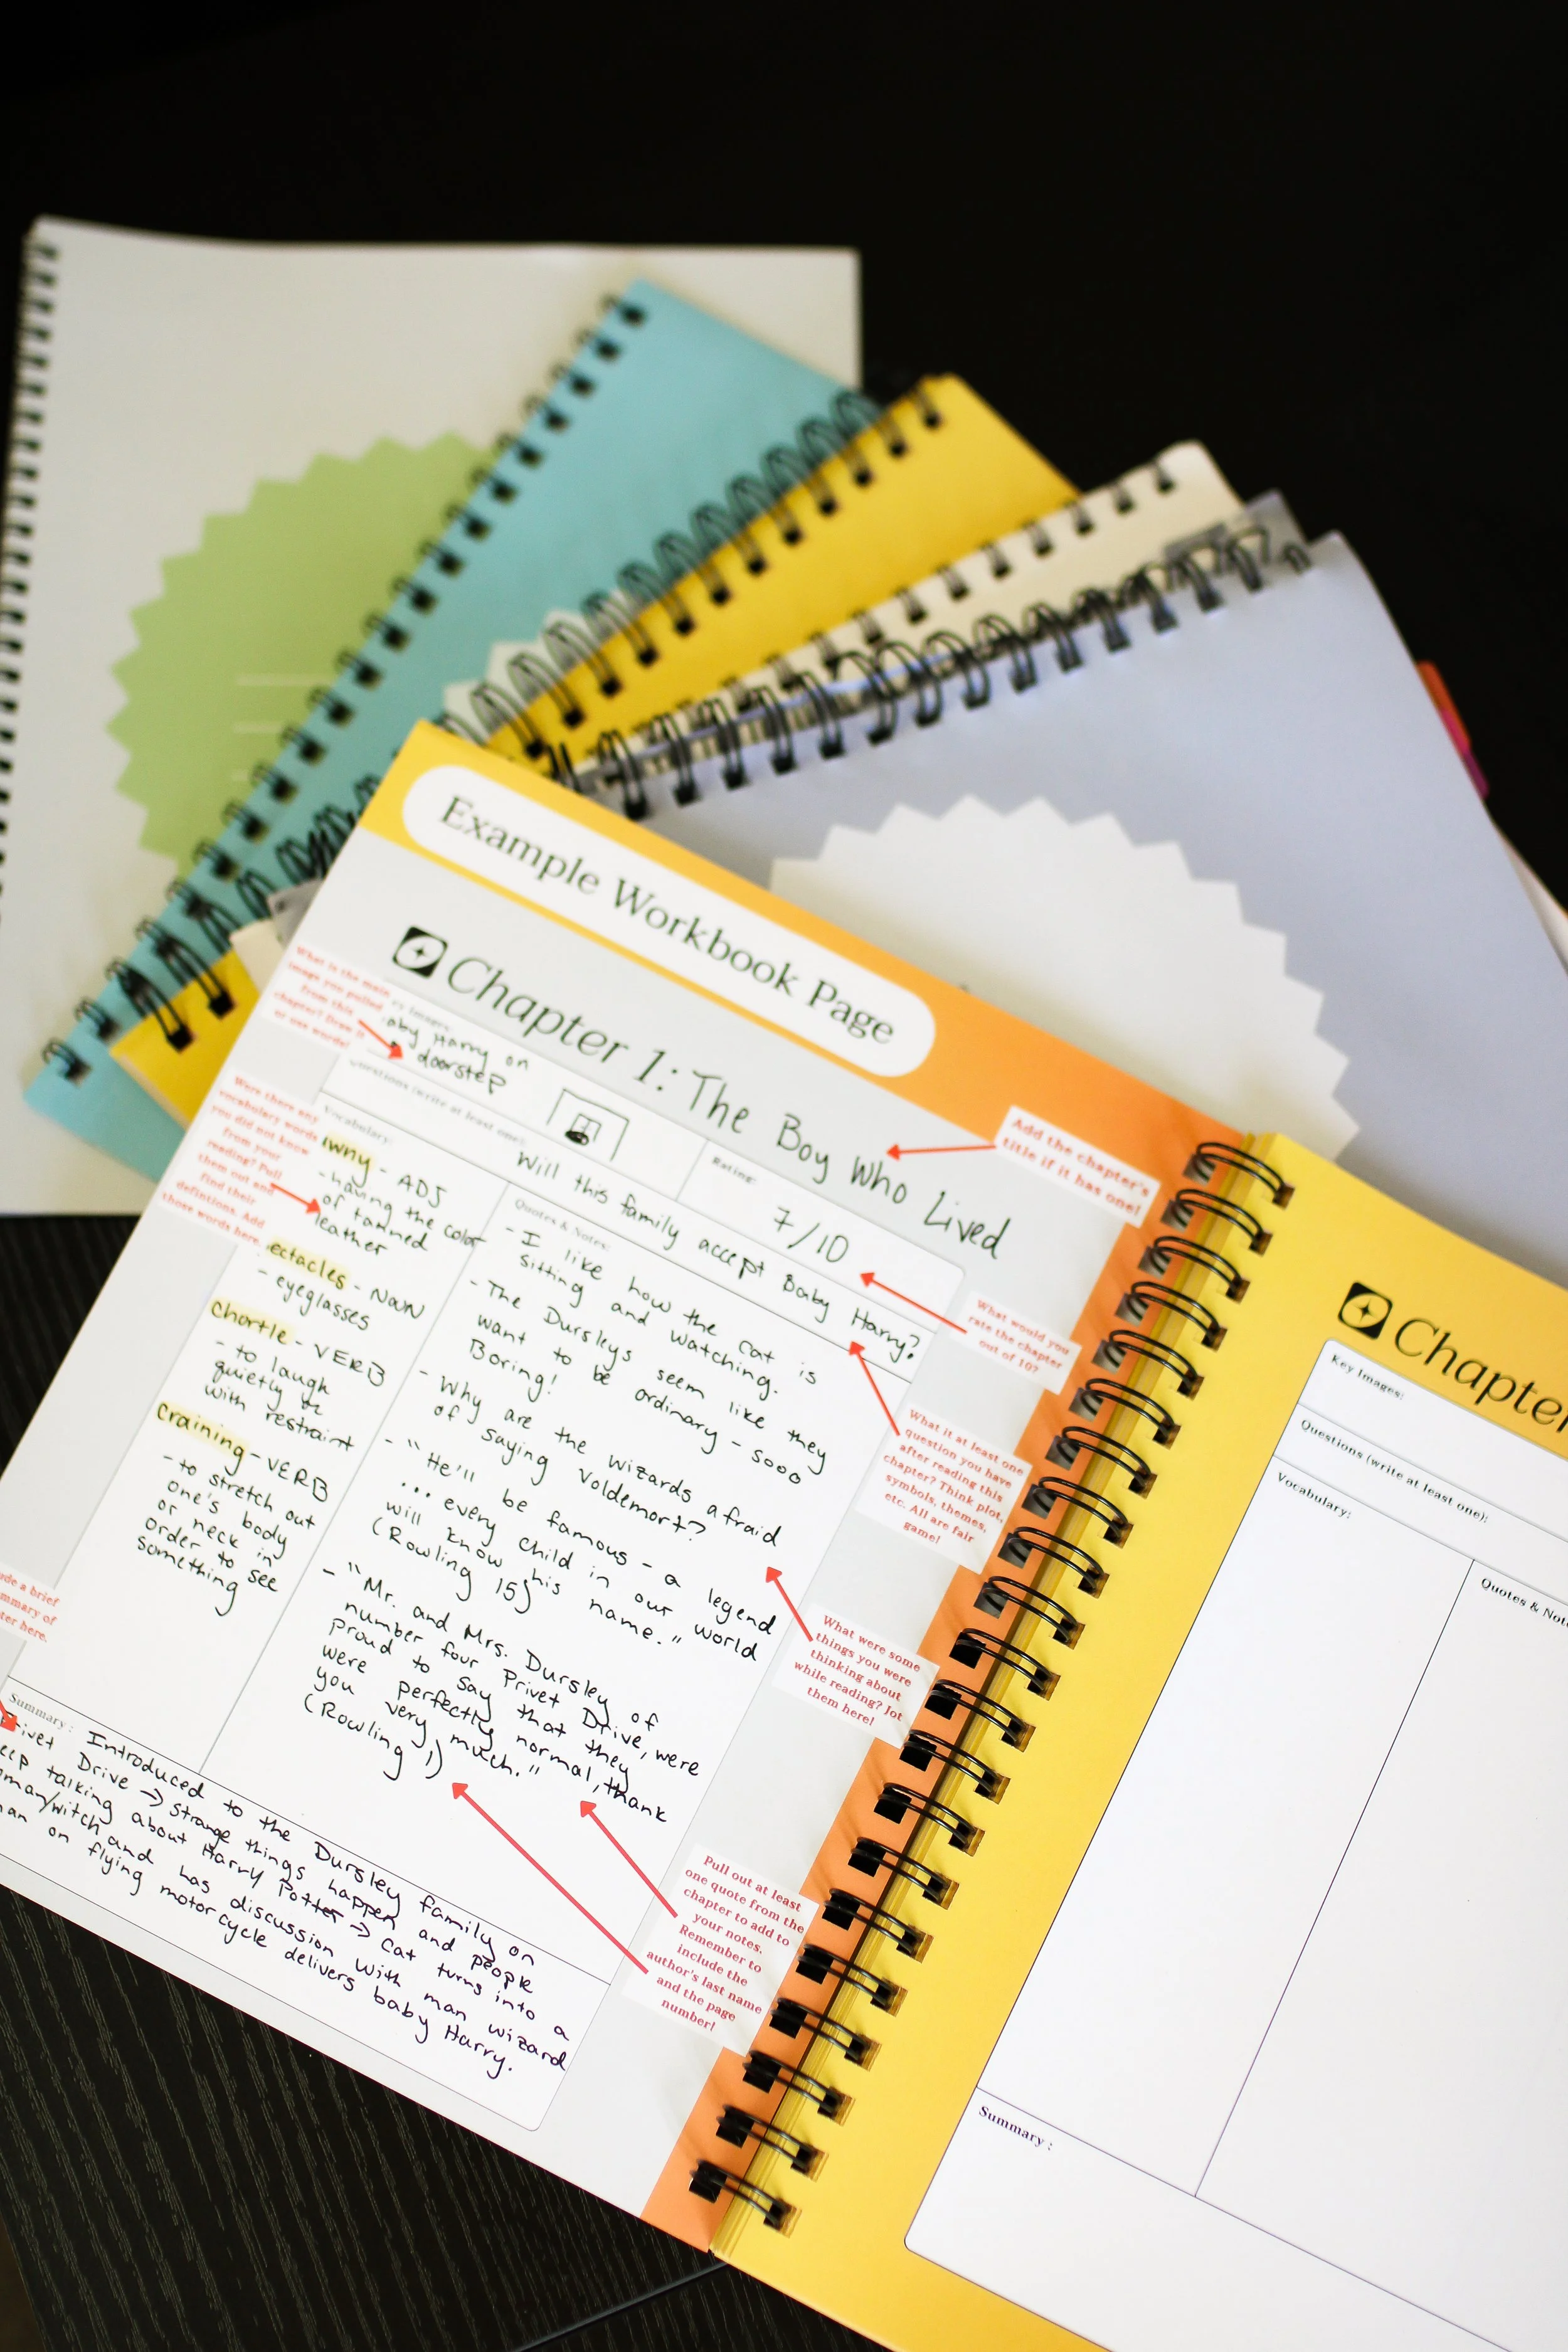 Example Workbook Page
Chapter 1: The Boy Who Lived
Add the chapter's
title if it has one!
What is the main
image you pulled
from this
chapter? Draw it
or use words!
y Images:
aby Harry on
doorstep
Rating:
7/10
What would you
rate the chapter
out of 10?
Questions (write at least one):
Will this family accept Baby Harry?
What it at least one
question you have
after reading this
chapter? Think plot,
symbols, themes,
etc. All are fair
game!
Were there any
vocabulary words
you did not know
from your
reading? Pull
them out and
find their
defintions. Add
those words here.
Vocabulary:
wny - ADJ
- having the color
of tanned
leather
ectacles - NOUN
- eyeglasses
chortle - VERB
- to laugh
quietly or
with restraint
craining - VERB
- to stretch out
one's body
or neck in
order to see
something
Quotes & Notes:
- I like how the cat is
sitting and watching.
- The Dursleys seem like they
want to be ordinary - sooo
Boring!
- Why are the wizards afraid
of saying Voldemort?
- "He'll be famous - a legend
... every child in our world
will know his name."
(Rowling 15)
- "Mr. and Mrs. Dursley of
number four Privet Drive, were
proud to say that they
were perfectly normal, thank
you very much."
(Rowling 1)
What were some
things you were
thinking about
while reading? Jot
them here!
Pull out at least
one quote from the
chapter to add to
your notes.
Remember to
include the
author's last name
and the page
number!
ude a brief
mmary of
ter here.
Summary:
Introduced to the Dursley family on
Privet Drive → strange things happen and people
eep talking about Harry Potter → cat turns into a
oman/witch and has discussion with man wizard
an on flying motorcycle delivers baby Harry.
Chapter
Key Images:
Questions (write at least one):
Vocabulary:
Quotes & Note
Summary :